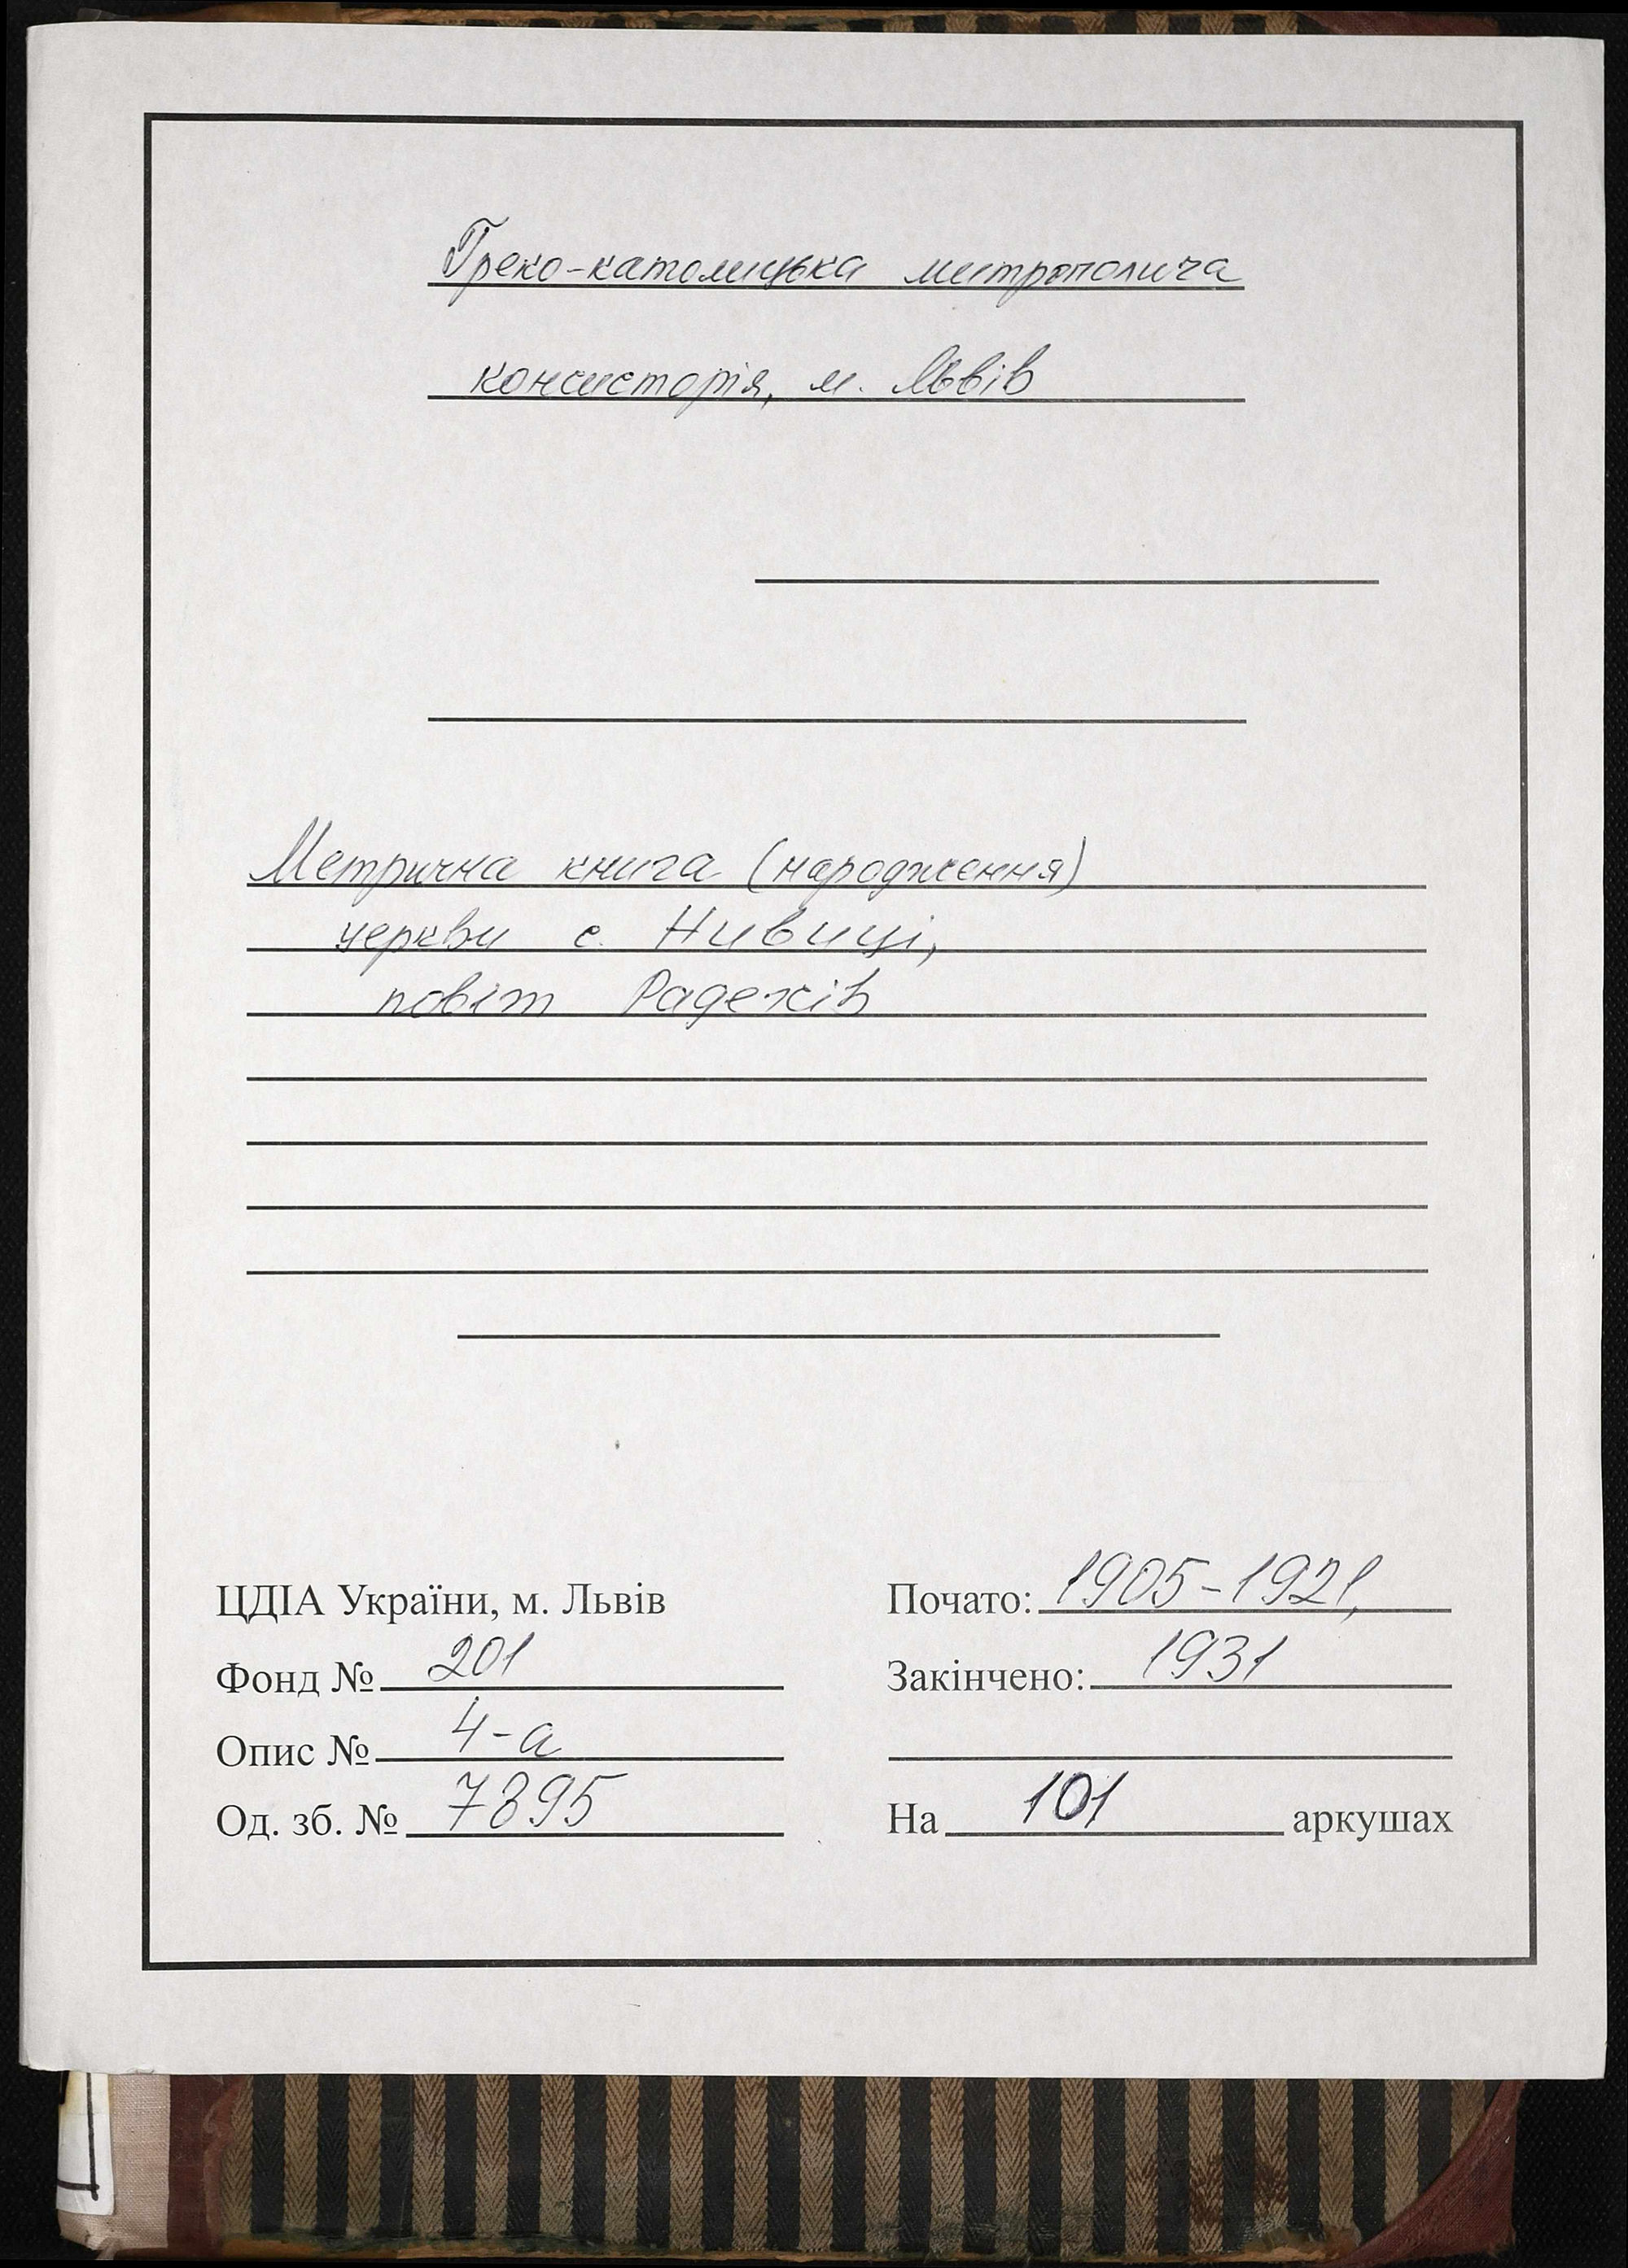 Греко-католицька митрополича
консисторія, м. Львів
Метрична книга (народження)
церкви с. Нивиці,
повіт Радехів
ЦДІА України, м. Львів
Фонд № 201
Опис № 4-а
Од. зб. № 7895
Почато: 1905-1921,
Закінчено: 1931
На 101 аркушах